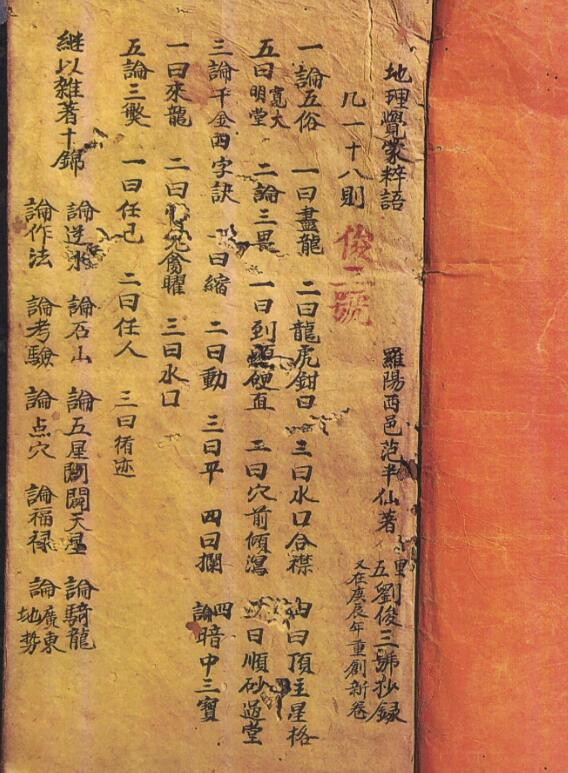 地理覺蒙粹語
羅陽西邑范半仙著
里五劉俊三號抄録
又在庚辰年重創新卷
凡一十八則
俊三號
一論五俗 一曰盡龍 二曰龍虎鉗口 三曰水口合襟 四曰頂主星格
五曰明堂寬大 二論三畏 一曰到頭硬直 二曰穴前傾瀉 三曰順砂過堂
三論千金四字訣 一曰縮 二曰動 三曰平 四曰攔 四論暗中三寶
一曰來龍 二曰禽曜 三曰水口
五論三弊 一曰任己 二曰任人 三曰循迹
継以雜著十錦
論逆水 論石山 論五星闘天星 論騎龍
論作法 論考驗 論点穴 論福禄 論廣東地勢